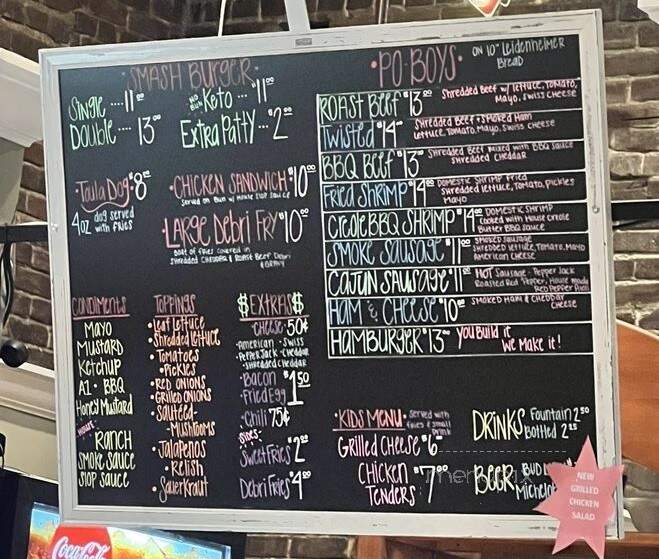 SMASH BURGER
Single ---- 11 00
Double --- 13 00
NO Bun Keto -- $11 00
Extra Patty --- $2 00
Toula Dog $8 00
4oz dog served with fries
CHICKEN SANDWICH $10 00
Served on Bun w/ House Slop Sauce
LARGE Debri Fry $10 00
Boat of fries covered in
Shredded Cheddar & Roast Beef Debri
& Gravy
PO-BOYS ON 10" Leidenheimer
BREAD
ROAST BEEF $13 00 Shredded Beef w/ lettuce, Tomato,
Mayo, Swiss Cheese
Twisted $14 00 Shredded Beef + Smoked Ham
Lettuce, Tomato, Mayo, Swiss Cheese
BBQ BEEF $13 00 Shredded Beef mixed with BBQ Sauce
Shredded Cheddar
Fried Shrimp $14 00 Domestic Shrimp Fried
Shredded lettuce, Tomato, Pickles
Mayo
Creole BBQ SHRIMP $14 00 DOMESTIC SHRIMP
cooked with House Creole
Butter BBQ Sauce
SMOKE SAUSAGE $11 00 Smoked Sausage
Shredded Lettuce, Tomato, Mayo
American Cheese
CAJUN SAUSAGE $11 00 HOT Sausage - Pepper Jack
Roasted Red Pepper, House made
Red Pepper Aioli
HAM & CHEESE $10 00 Smoked Ham & Cheddar
Cheese
HAMBURGER $13 00 You Build it
We Make it!
CONDIMENTS
MAYO
MUSTARD
Ketchup
A1 • BBQ
Honey Mustard
House:
RANCH
SMOKE SAUCE
Slop SAUCE
TOPPINGS
• Leaf lettuce
• Shredded lettuce
• Tomatoes
• Pickles
• RED ONIONS
• Grilled ONIONS
• Sauteed-
Mushrooms
• Jalapenos
• Relish
• Sauerkraut
$EXTRAS$
• Cheese • 50¢
• American • Swiss
• PepperJack • Cheddar
• Shredded Cheddar
• Bacon $1 50
• Fried Egg
• Chili 75¢
Sides:
Sweet Fries $2 00
Debri Fries $4 00
• KIDS MENU • Served with
fries & small
Drink
Grilled Cheese $6
CHICKEN
TENDERS $7 00
DRINKS Fountain 2 50
Bottled 2 25
BEER BUD
Michelob
NEW
GRILLED
CHICKEN
SALAD
Coca-Cola
menupix